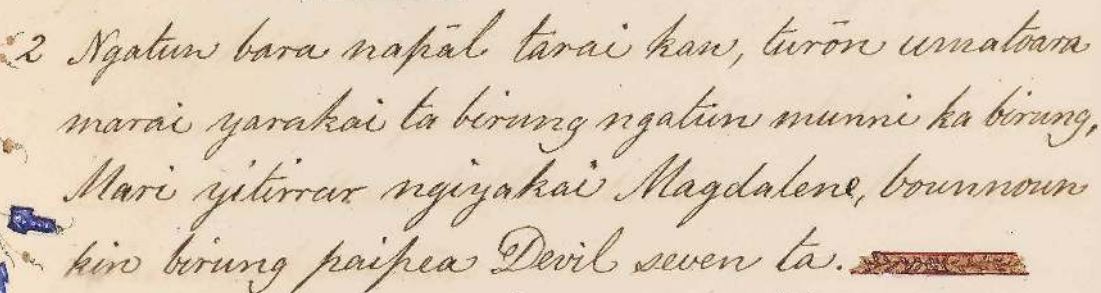 2 Ngatun bara napāl tārai kan, turōn umatoara
marai yarakai ta birung ngatun munni ka birung,
Mari yitirrar ngiyakai Magdalene, bounnoun
kin birung paipea Devil seven ta.